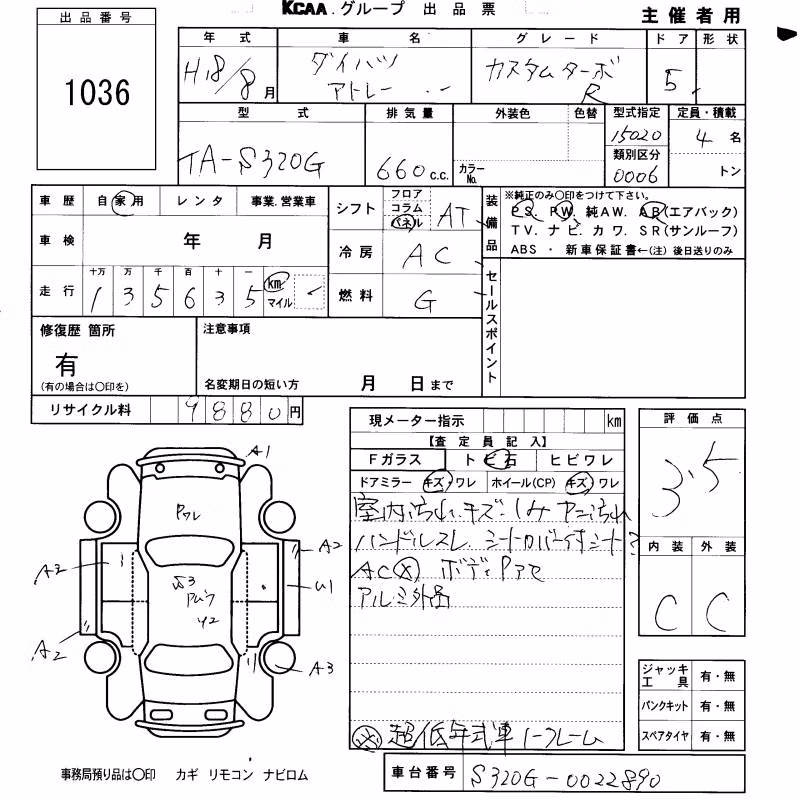 KCAA.グループ 出品票
主催者用
出品番号
1036
年式 車名 グレード ドア 形状
H18/8月 ダイハツ アトレー カスタムターボR 5
型式 排気量 外装色 色替 型式指定 定員・積載
TA-S320G 660c.c. カラーNo. 15020 4名
類別区分
0006 トン
車歴 自家用 レンタ 事業.営業車
シフト フロア コラム パネル AT
装備品
※純正のみ○印をつけて下さい。
PS. PW. 純AW. AB(エアバック)
TV. ナビ. カワ. SR(サンルーフ)
ABS・新車保証書←(注)後日送りのみ
車検 年 月
冷房 AC
セールスポイント
走行 十万 万 千 百 十 一
135635 km マイル
燃料 G
修復歴 箇所 注意事項
有
(有の場合は○印を) 名変期日の短い方 月 日まで
リサイクル料 9880円
現メーター指示 km
評価点
3.5
【査定員記入】
Fガラス トビ石 ヒビワレ
ドアミラー キズ・ワレ ホイール(CP) キズ・ワレ
室内汚れ.キズ.シミ ヤニ汚れ
ハンドルスレ
AC(×) ボディ
アルミ外品
内装 外装
C C
A1
Pワレ
A2
A3
U1
A2
A3
ジャッキ工具 有・無
パンクキット 有・無
スペアタイヤ 有・無
超低年式車
車台番号 S320G-0022890
事務局預り品は○印 カギ リモコン ナビロム